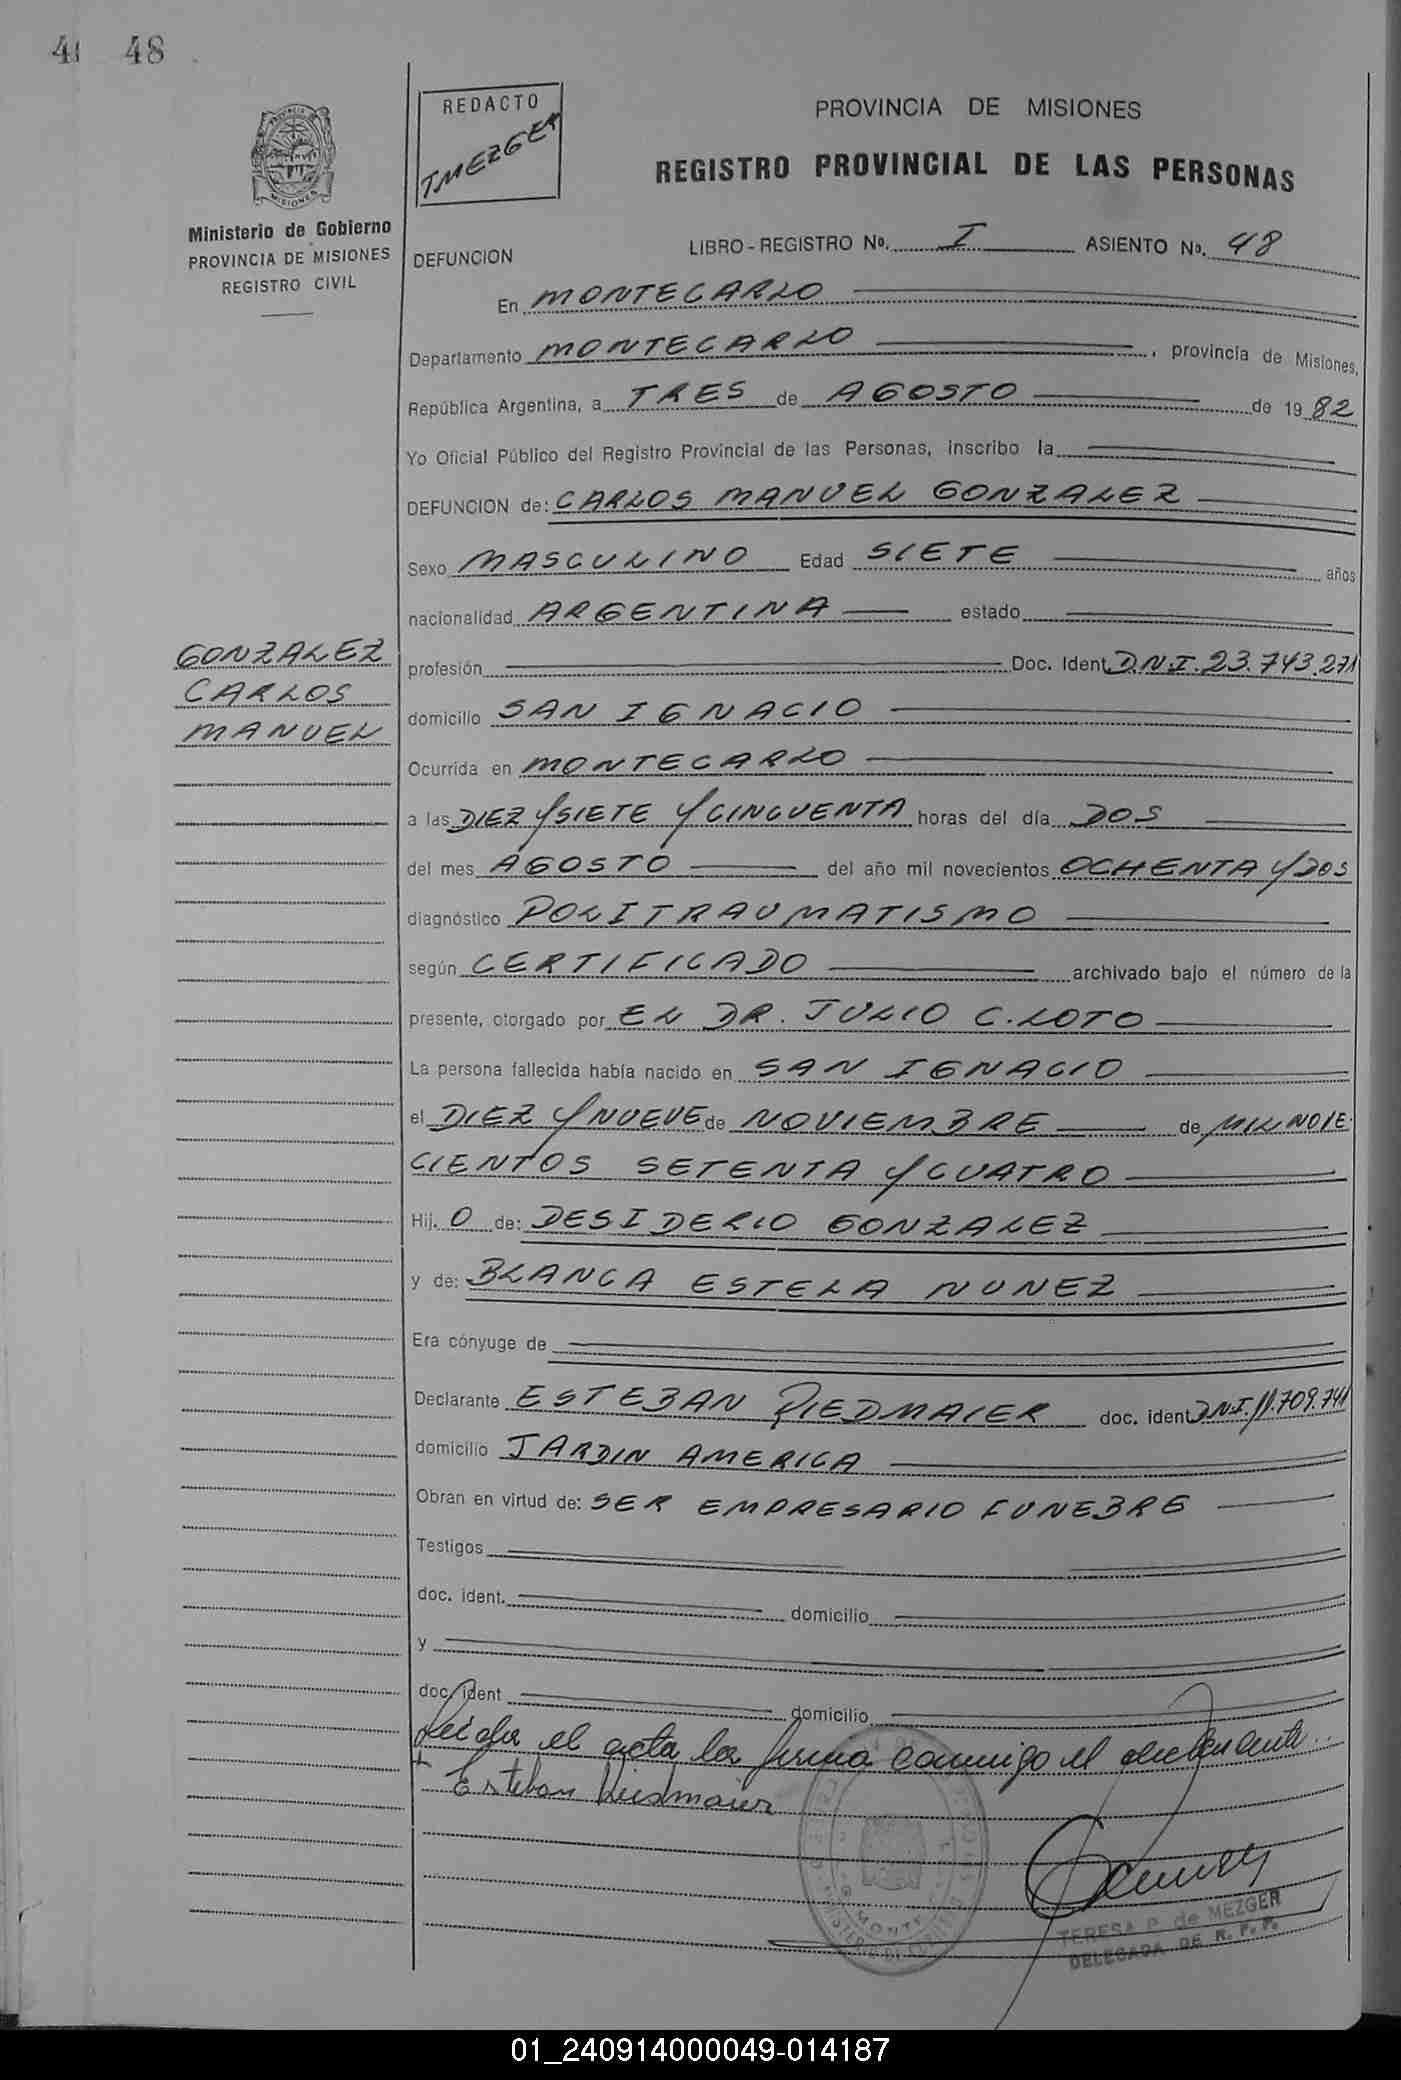 48
REDACTO
TMEZGER
PROVINCIA DE MISIONES
REGISTRO PROVINCIAL DE LAS PERSONAS
Ministerio de Gobierno
PROVINCIA DE MISIONES
REGISTRO CIVIL
DEFUNCION
LIBRO - REGISTRO No. I ASIENTO No. 48
En MONTECARLO
Departamento MONTECARLO , provincia de Misiones,
República Argentina, a TRES de AGOSTO de 1982
Yo Oficial Público del Registro Provincial de las Personas, inscribo la
DEFUNCION de: CARLOS MANUEL GONZALEZ
Sexo MASCULINO Edad SIETE años
nacionalidad ARGENTINA estado
GONZALEZ
CARLOS
MANUEL
profesión Doc. Ident. D.N.I. 23.743.271
domicilio SAN IGNACIO
Ocurrida en MONTECARLO
a las DIEZ Y SIETE Y CINCUENTA horas del día DOS
del mes AGOSTO del año mil novecientos OCHENTA Y DOS
diagnóstico POLITRAUMATISMO
según CERTIFICADO archivado bajo el número de la
presente, otorgado por EL DR. JULIO C. LOTO
La persona fallecida había nacido en SAN IGNACIO
el DIEZ Y NUEVE de NOVIEMBRE de MIL NOVE-
CIENTOS SETENTA Y CUATRO
Hij. O de: DESIDERIO GONZALEZ
y de: BLANCA ESTELA NUNEZ
Era cónyuge de
Declarante ESTEBAN RIEDMAIER doc. ident. D.N.I. 11.709.741
domicilio JARDIN AMERICA
Obran en virtud de: SER EMPRESARIO FUNEBRE
Testigos
doc. ident. domicilio
y
doc. ident domicilio
Leida el acta la firma conmigo el declarante..
Esteban Riedmaier
TERESA P. de MEZGER
DELEGADA DE R. P. P.
01_240914000049-014187